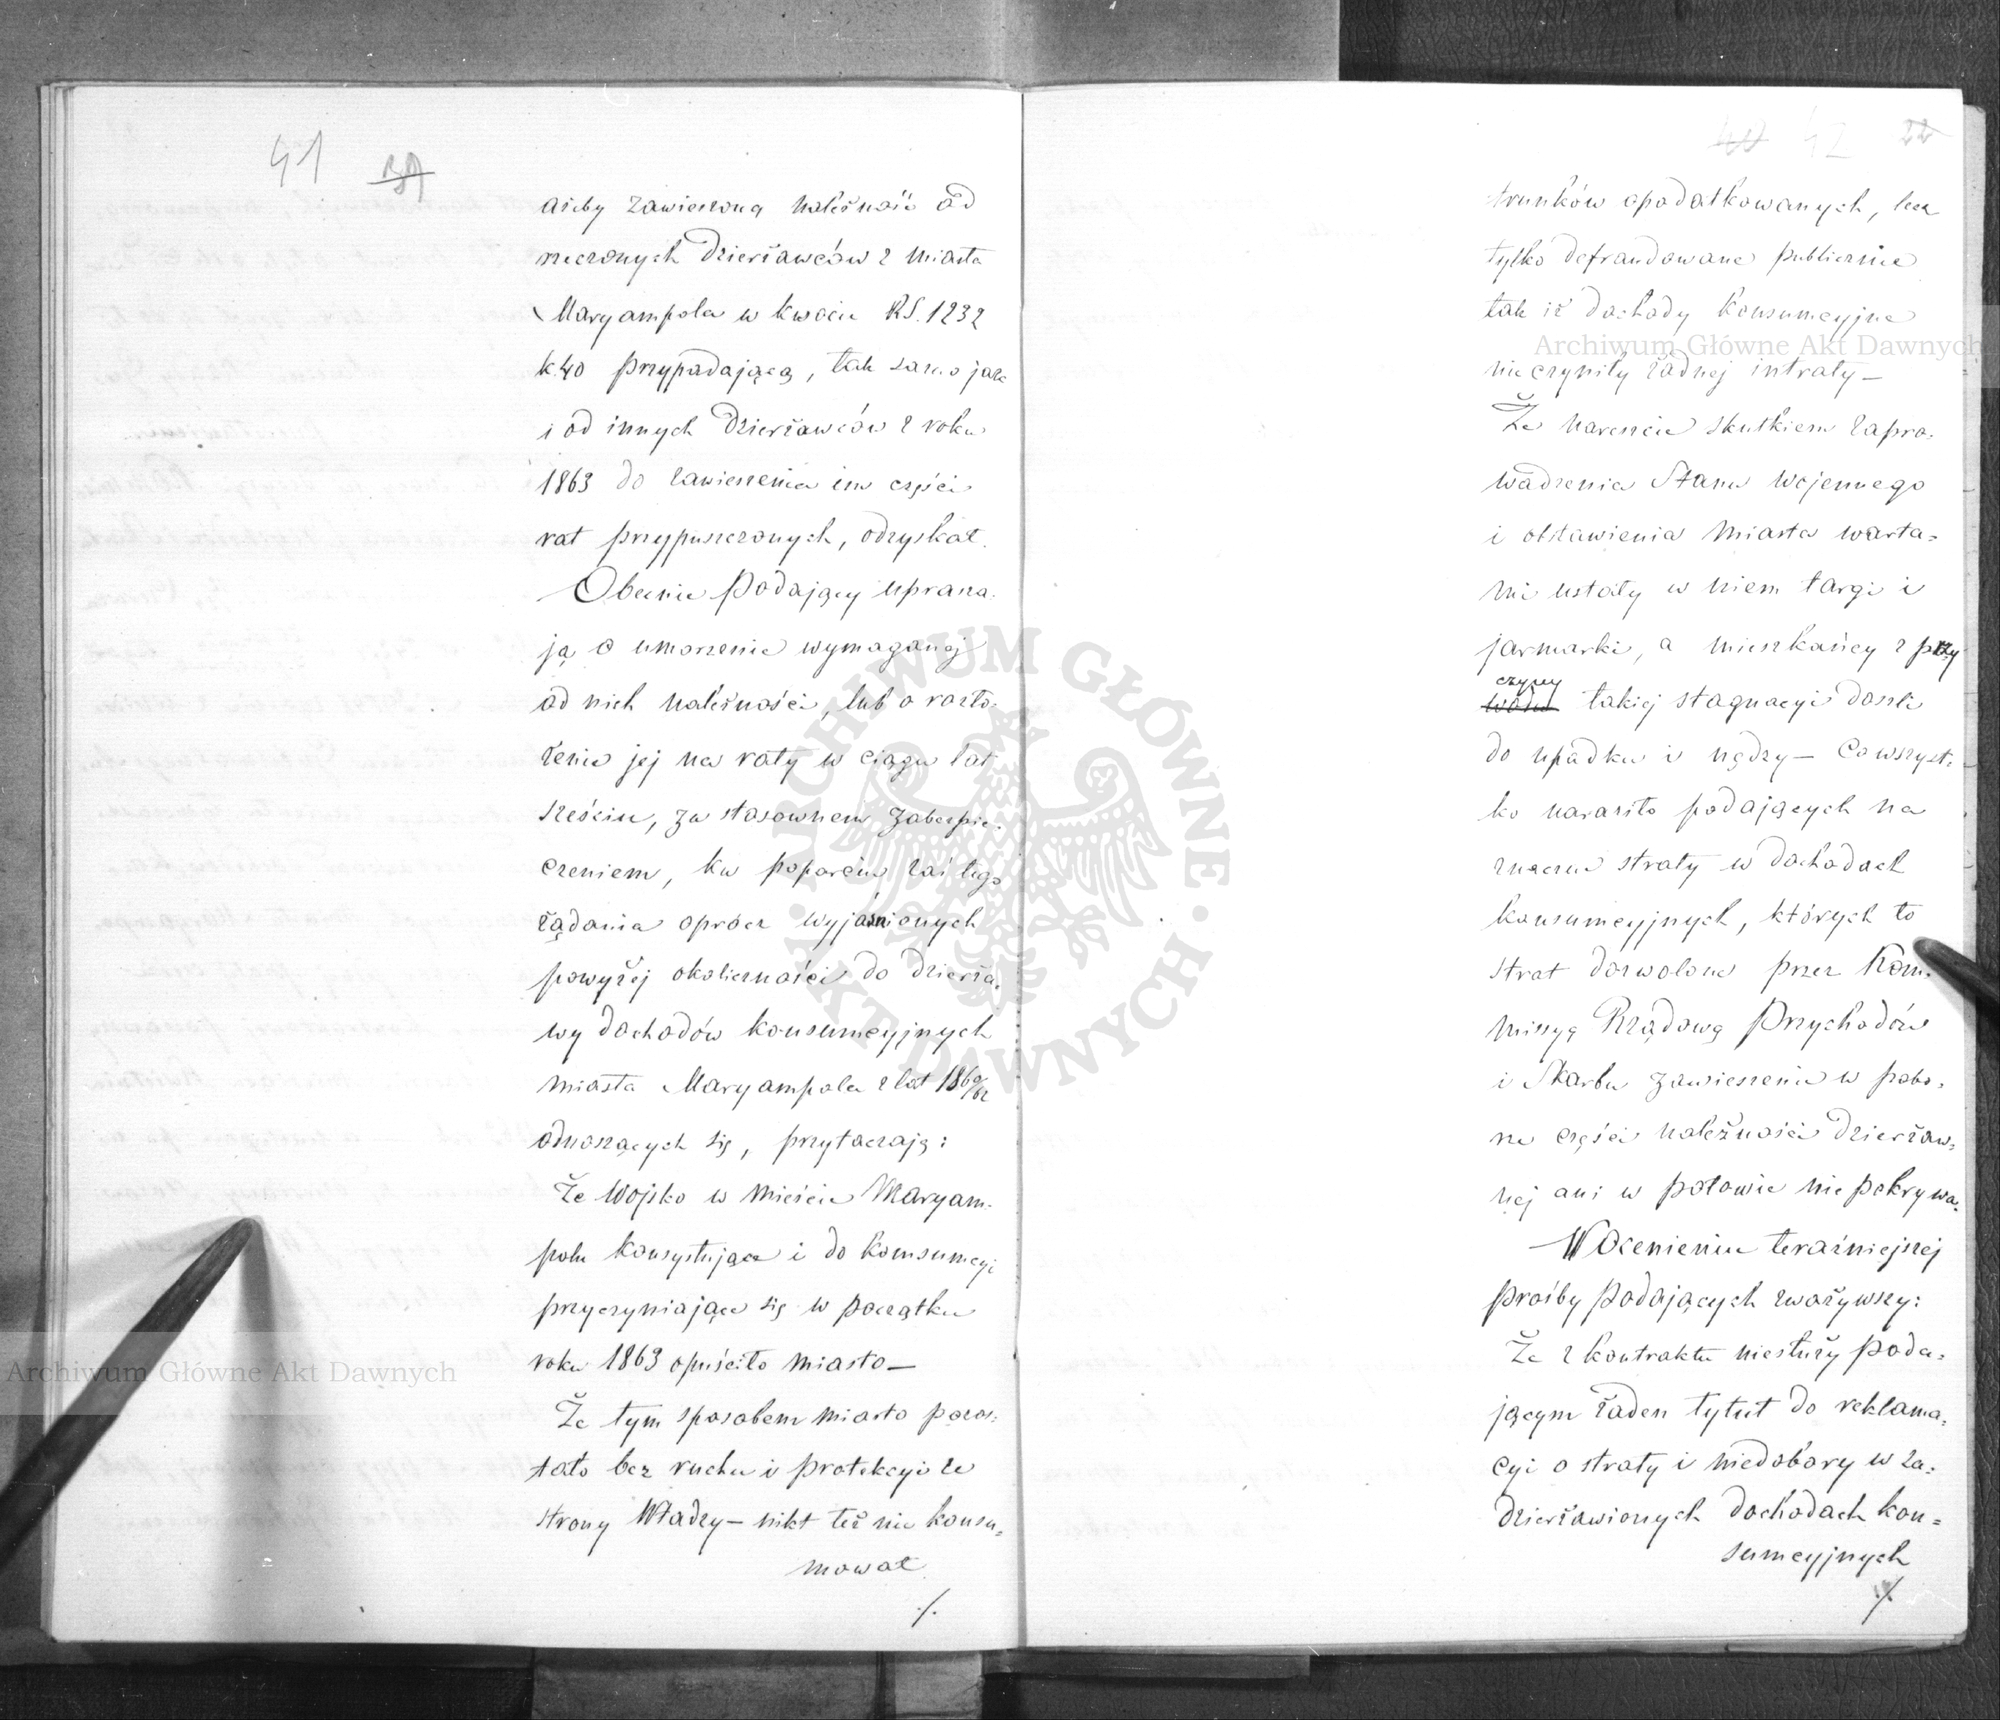 41 39
ażeby zawieszoną należność od
rzeczonych Dzierżawców z Miasta
Maryampola w kwocie RS. 1232
k 40 przypadającą, tak samo jak
i od innych Dzierżawców z roku
1863 do zawieszenia im części
rat przypuszczonych, odzyskał.
Obecnie Podający uprasza-
ją o umorzenie wymaganej
od nich należności, lub o rozło-
żenie jej na raty w ciągu lat
sześciu, za stosownem zabezpie-
czeniem, ku poparciu zaś tego
żądania oprócz wyjaśnionych
powyżej okoliczności do dzierża-
wy dochodów konsumcyjnych
miasta Maryampola z lat 1860/62
odnoszących się, przytaczają:
Że Wojsko w Mieście Maryam-
polu konsystujące i do konsumcyi
przyczyniające się w początku
roku 1863 opuściło miasto —
Że tym sposobem miasto pozos-
tało bez ruchu i protekcyi ze
strony Władzy — nikt też nie konsu-
mował
./.
40 42 22
trunków opodatkowanych, lecz
tylko defraudowane publicznie
tak iż dochody konsumcyjne
nie czyniły żadnej intraty —
Że nareszcie skutkiem zapro-
wadzenia Stanu Wojennego
i obstawienia Miasta warta-
mi ustały w niem targi i
jarmarki, a mieszkańcy z przy
czyny
takiej stagnacyi doszli
do upadku i nędzy — Co wszyst-
ko naraziło podających na
znaczne straty w dochodach
konsumcyjnych, których to
strat dozwolone przez Kom-
missyą Rządową Przychodów
i Skarbu zawieszenie w pobo-
rze części należności dzierżaw-
nej ani w połowie nie pokrywa.
W Ocenieniu teraźniejszej
prośby podających zważywszy:
Że z kontraktu niesłuży poda-
jącym żaden tytuł do reklama-
cyi o straty i niedobory w za-
dzierżawionych dochodach kon-
sumcyjnych
./.
Archiwum Główne Akt Dawnych
Archiwum Główne Akt Dawnych
ARCHIWUM GŁÓWNE · AKT DAWNYCH ·